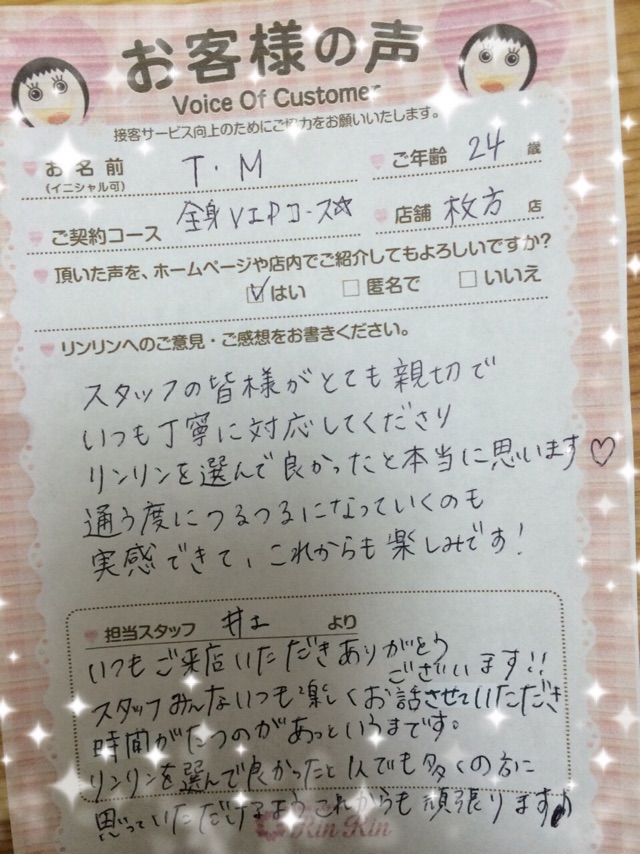 お客様の声
Voice Of Customer
接客サービス向上のためにご協力をお願いいたします。
お名前 T・M ご年齢 24 歳
(イニシャル可)
ご契約コース 全身VIPコース☆ 店舗 枚方 店
頂いた声を、ホームページや店内でご紹介してもよろしいですか?
☑はい □匿名で □いいえ
リンリンへのご意見・ご感想をお書きください。
スタッフの皆様がとても親切で
いつも丁寧に対応してくださり
リンリンを選んで良かったと本当に思います♡
通う度につるつるになっていくのも
実感できて、これからも楽しみです!
担当スタッフ 井上 より
いつもご来店いただきありがとう
ございます!!
スタッフみんないつも楽しくお話させていただき
時間がたつのがあっというまです。
リンリンを選んで良かったと1人でも多くの方に
思っていただけるようこれからも頑張ります♪
Rin Rin